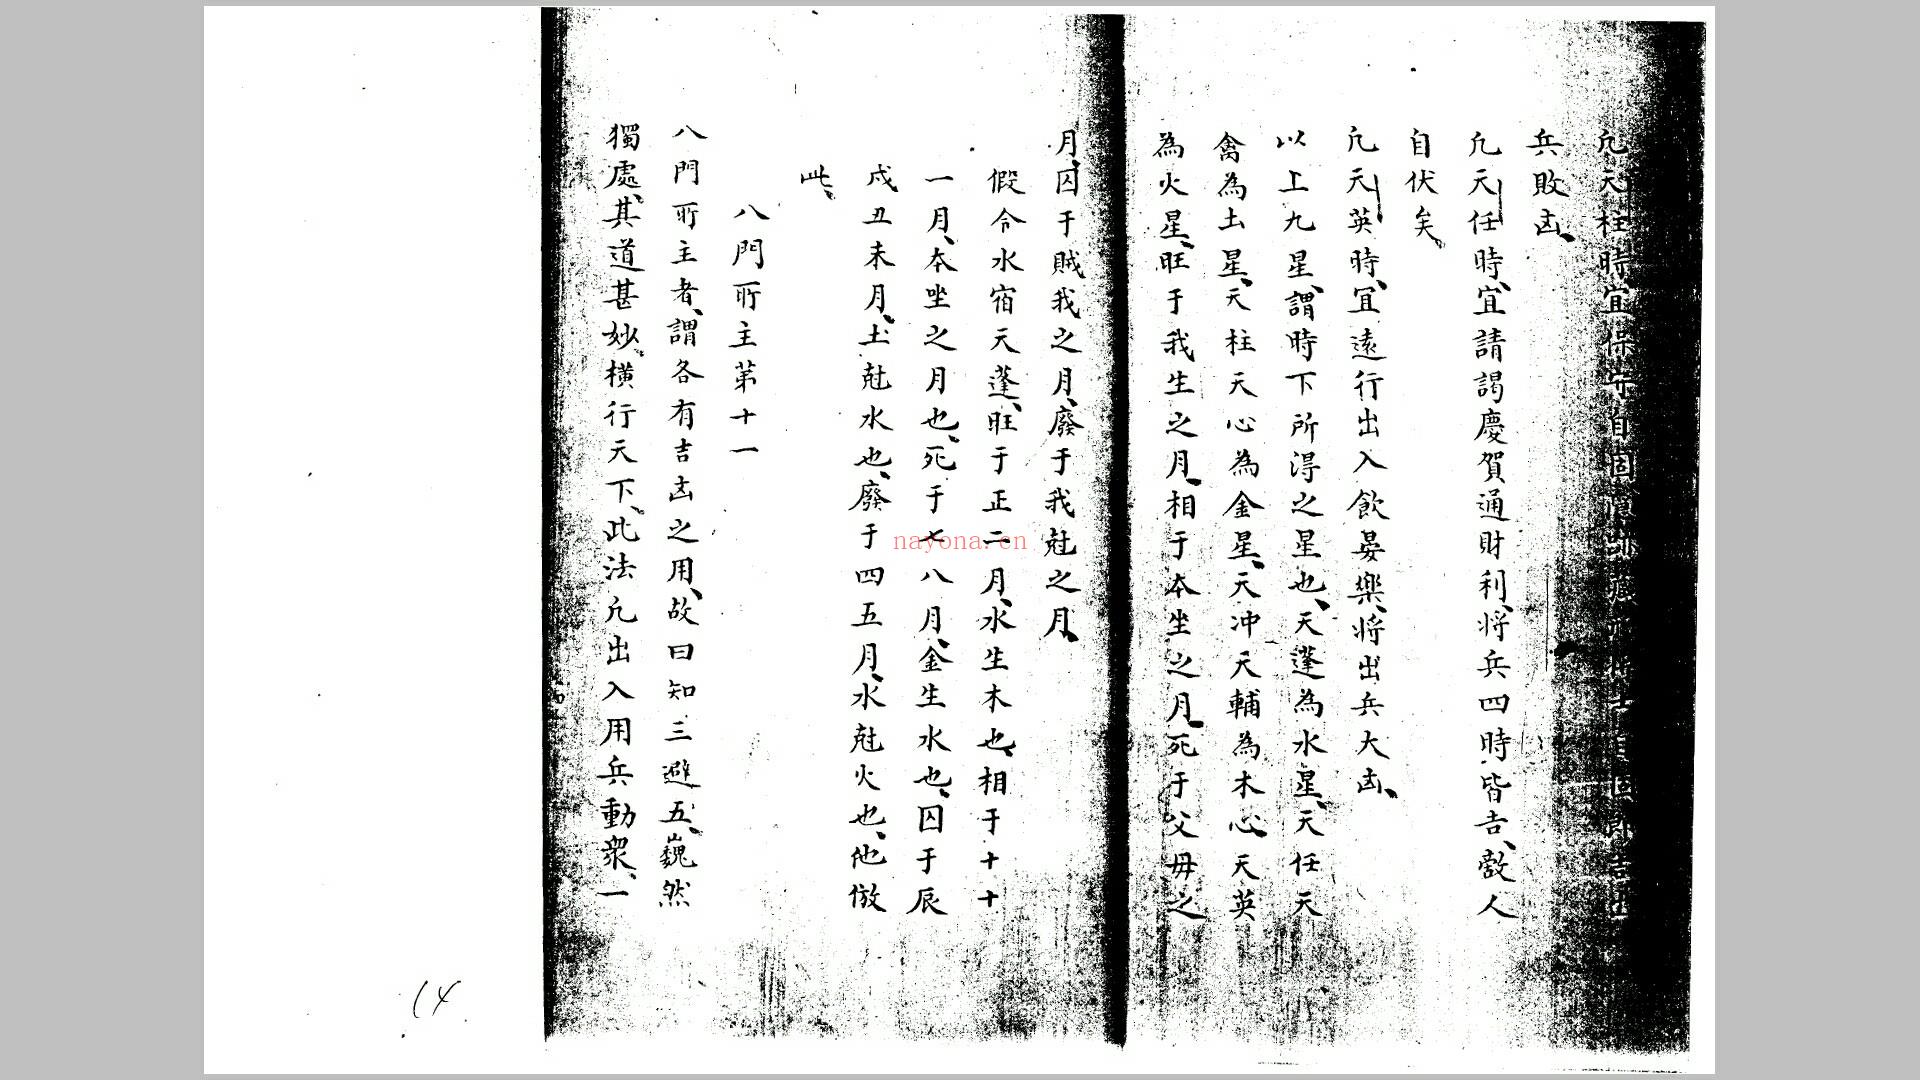 凢天柱時宜保守自固
兵敗凶、
凢天任時、宜請謁慶賀通財利、将兵四時皆吉、敵人
自伏矣、
凢天英時、冝遠行出入飲晏樂、将出兵大凶、
以上九星、謂時下所淂之星也、天蓬為水星、天任天
禽為土星、天柱天心為金星、天冲天輔為木心、天英
為火星、旺于我生之月、相于本坐之月、死于父毋之
月、囚于賊我之月、廢于我尅之月、
假令水宿天蓬、旺于正二月、水生木也、相于十十
一月、本坐之月也、死于七八月、金生水也、囚于辰
戌丑未月、土尅水也、廢于四五月、水尅火也、他倣
此、
八門所主第十一
八門所主者、謂各有吉凶之用、故曰知三避五、巍然
獨處、其道甚妙、横行天下、此法凢出入用兵動衆、一
14
nayona.cn